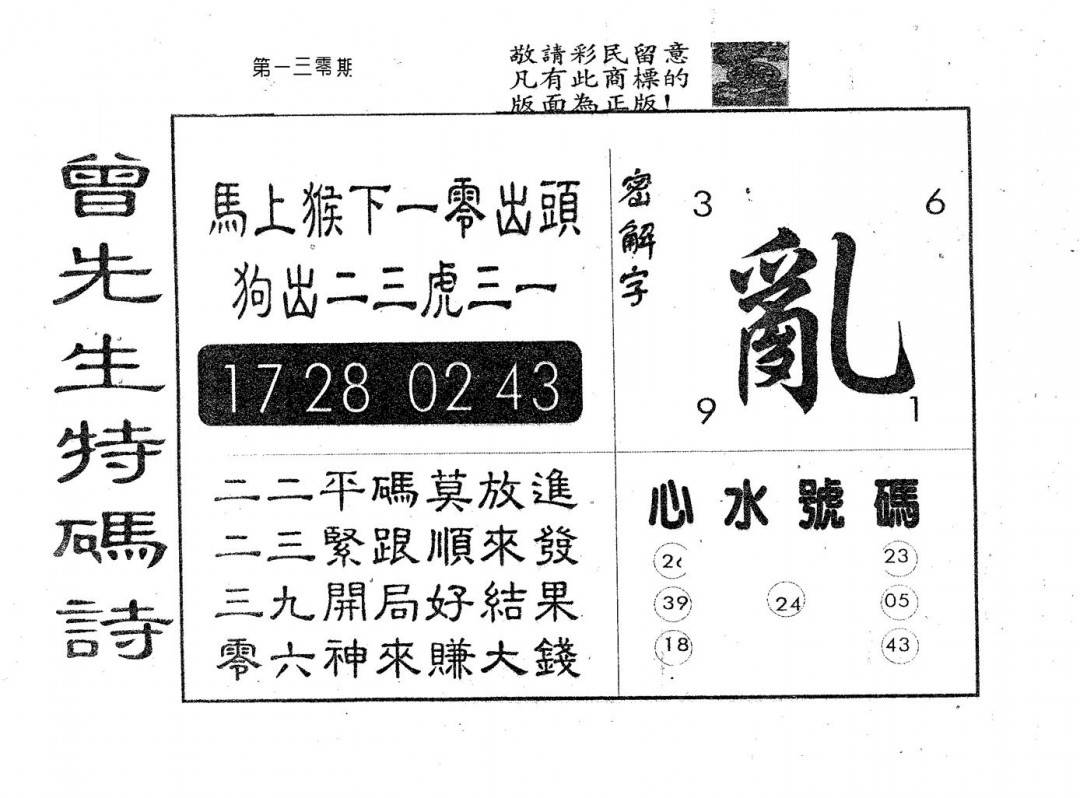 第一三零期
敬請彩民留意
凡有此商標的
版面為正版！
曾先生特碼詩
馬上猴下一零出頭
狗出二三虎三一
17 28 02 43
二二平碼莫放進
二三緊跟順來發
三九開局好結果
零六神來賺大錢
密解字
3 6
亂
9 1
心水號碼
23
39 24 05
18 43